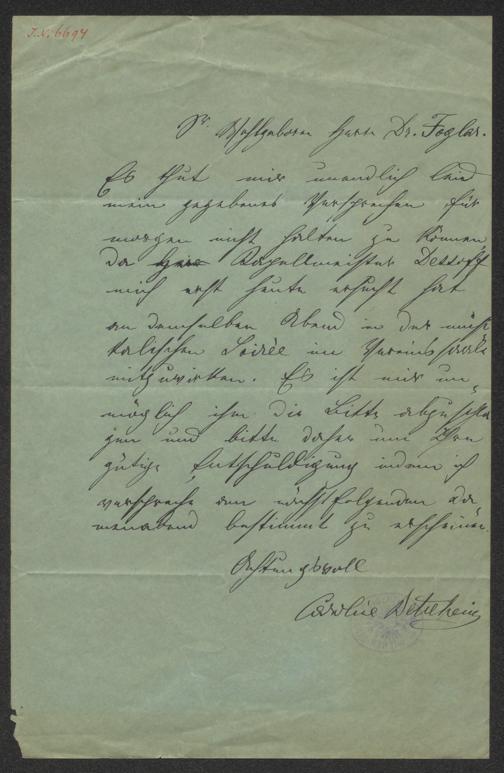 I.N. 6694
Sr. Wohlgeboren Herrn Dr. Foglar.
Es thut mir unendlich leid
mein gegebenes Versprechen für
morgen nicht halten zu können
da Herr Kapellmeister Dessoff
mich erst heute ersucht hat
an demselben Abend in der musi
kalischen Soirée im Vereinssaale
mitzuwirken. Es ist mir un„
möglich ihm die Bitte abzuschla
gen und bitte daher um Ihre
gütige Entschuldigung indem ich
verspreche am nächstfolgenden Da
menabend bestimmt zu erscheinen.
Achtungsvoll
Caroline